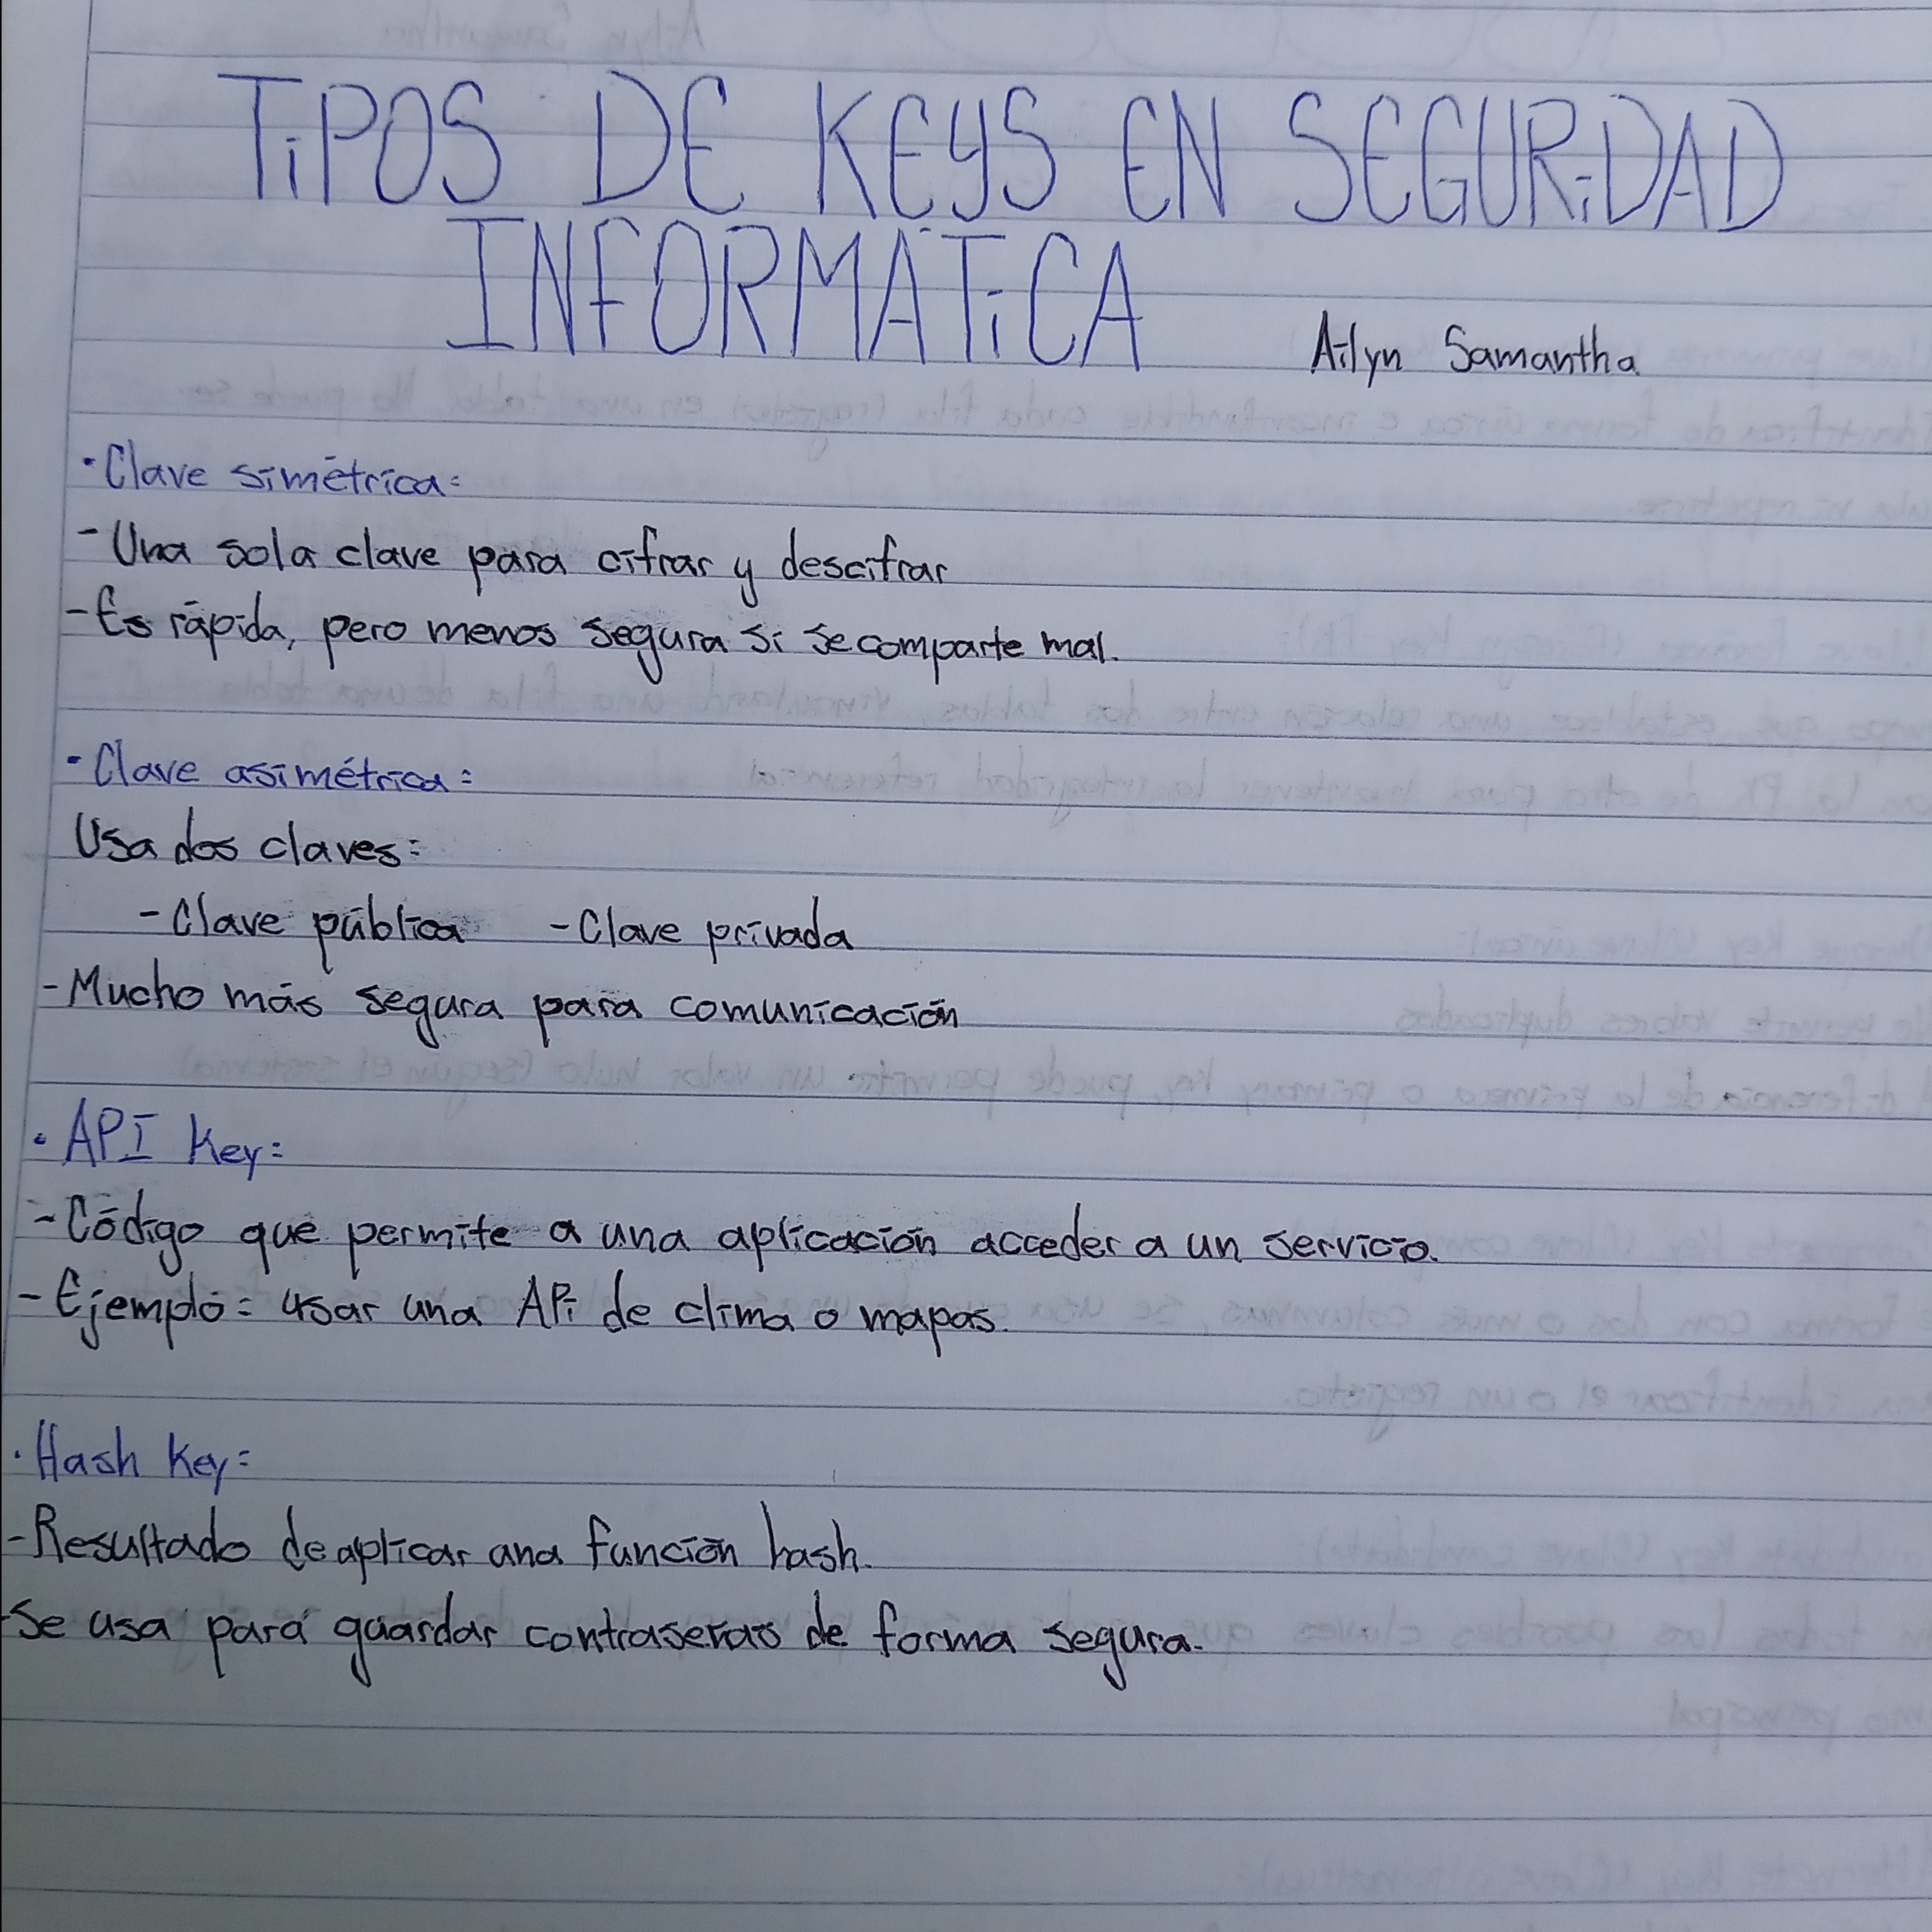 TiPOS DE KEYS EN SEGURiDAD
INFORMÁTiCA
Ailyn Samantha
• Clave simétrica:
- Una sola clave para cifrar y descifrar
- Es rápida, pero menos segura si se comparte mal.
• Clave asimétrica:
Usa dos claves:
- Clave pública - Clave privada
- Mucho más segura para comunicación
• API Key:
- Código que permite a una aplicación acceder a un servicio.
- Ejemplo: usar una APi de clima o mapas.
• Hash Key:
- Resultado de aplicar una función hash.
- Se usa para guardar contraseñas de forma segura.